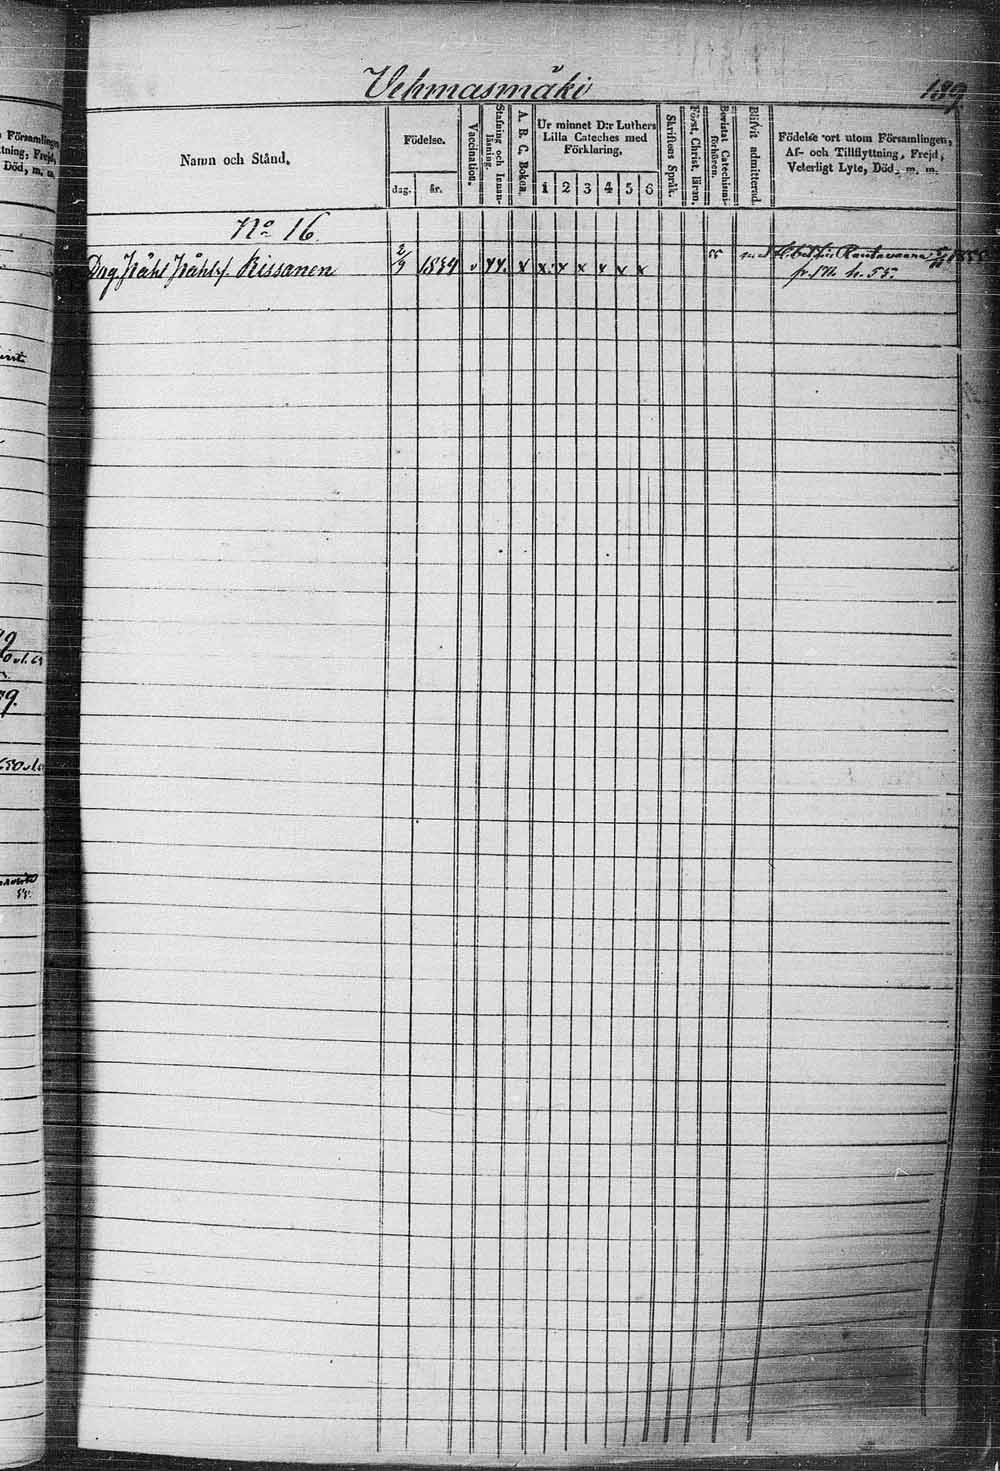 Vehmasmäki
189
Namn och Stånd.
Födelse.
dag.
år.
Vaccination.
Stafning och Innan-
läsning.
A. B. C. Boken.
Ur minnet D:r Luthers
Lilla Cateches med
Förklaring.
1 2 3 4 5 6
Skriftens Språk.
Först. Christ. läran.
Bevistat Catechismi-
förhören.
Blifvit admitterad.
Födelse ort utom Församlingen,
Af- och Tillflyttning, Frejd,
Veterligt Lyte, Död, m. m.
No 16.
Drg Påhl Påhls f. Rissanen 2/9 1834 v x x x x x x x 55 Rautavaara 1855
h. 55.
Församlingen
tning, Frejd,
Död, m. m.